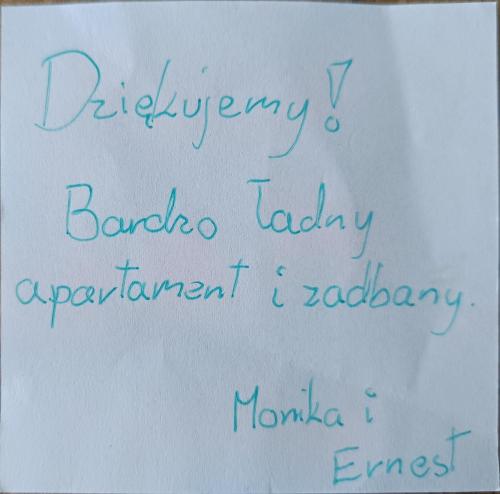 Dziękujemy!
Bardzo ładny
apartament i zadbany.
Monika i
Ernest